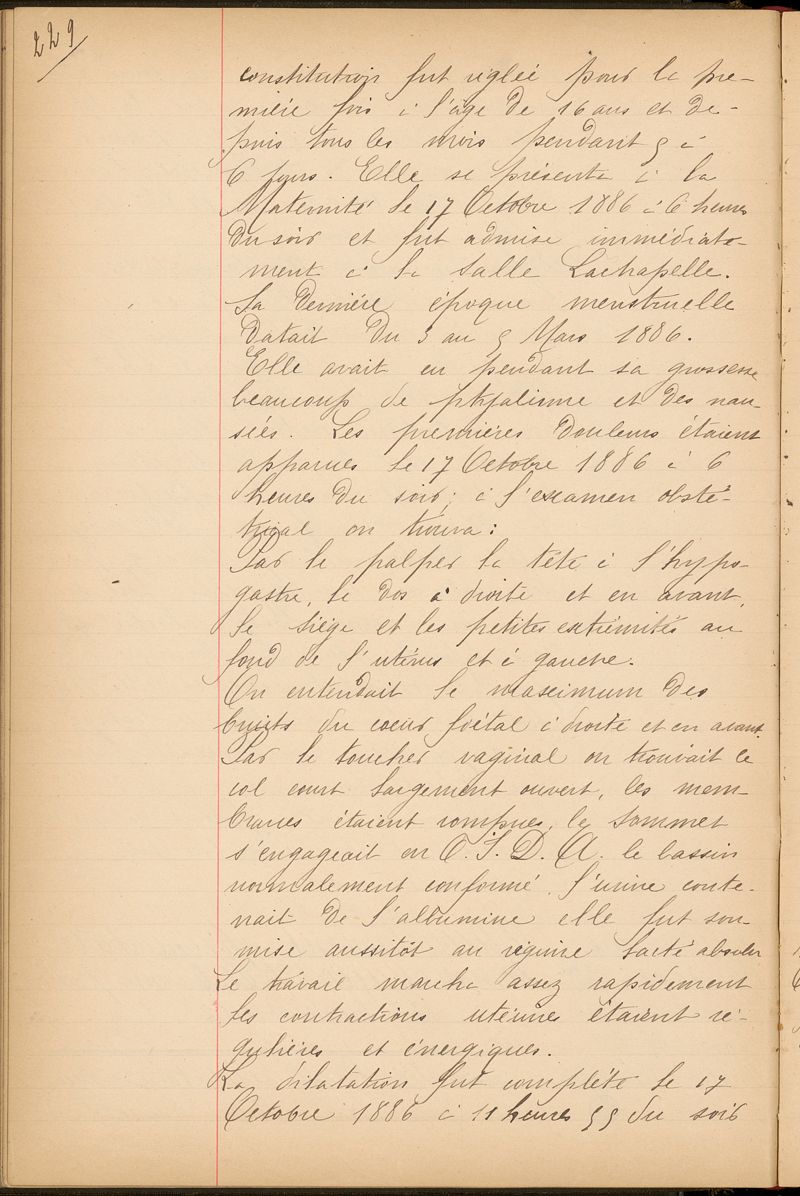 229
constitution fut réglée pour la pre-
mière fois à l'âge de 16 ans et de-
puis tous les mois pendant 5 à
6 jours. Elle se présenta à la
Maternité le 17 Octobre 1886 à 6 heures
du soir et fut admise immédiate-
ment à la salle Lachapelle.
Sa dernière époque menstruelle
datait du 3 au 5 Mars 1886.
Elle avait eu pendant sa grossesse
beaucoup de ptyalisme et des nau-
sées. Les premières douleurs étaient
apparues le 17 Octobre 1886 à 6
heures du soir; à l'examen obsté-
trical on trouva:
Par le palper la tête à l'hypo-
gastre, le dos à droite et en avant,
le siège et les petites extrémités au
fond de l'utérus et à gauche.
On entendait le maximum des
bruits du coeur foetal à droite et en avant.
Par le toucher vaginal on trouvait le
col court largement ouvert, les mem-
branes étaient rompues, le sommet
s'engageait en O. I. D. A. le bassin
normalement conformé. L'urine conte-
nait de l'albumine elle fut sou-
mise aussitôt au régime lacté absolu
Le travail marcha assez rapidement
les contractions utérines étaient ré-
gulières et énergiques.
La dilatation fut complète le 17
Octobre 1886 à 11 heures 55 du soir